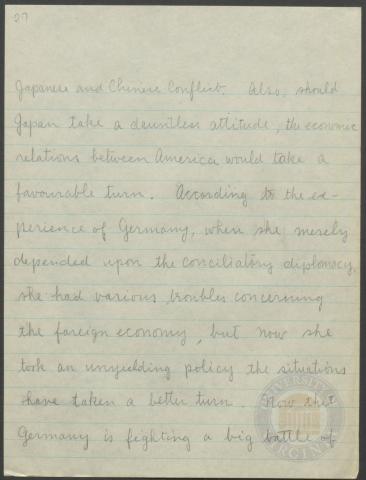 27
Japanese and Chinese Conflict. Also, should
Japan take a dauntless attitude, the economic
relations between America would take a
favourable turn. According to the ex-
perience of Germany, when she merely
depended upon the conciliatory diplomacy,
she had various troubles concerning
the foreign economy, but now she
took an unyielding policy the situations
have taken a better turn. Now that
Germany is fighting a big battle of
UNIVERSITY
VIRGINIA